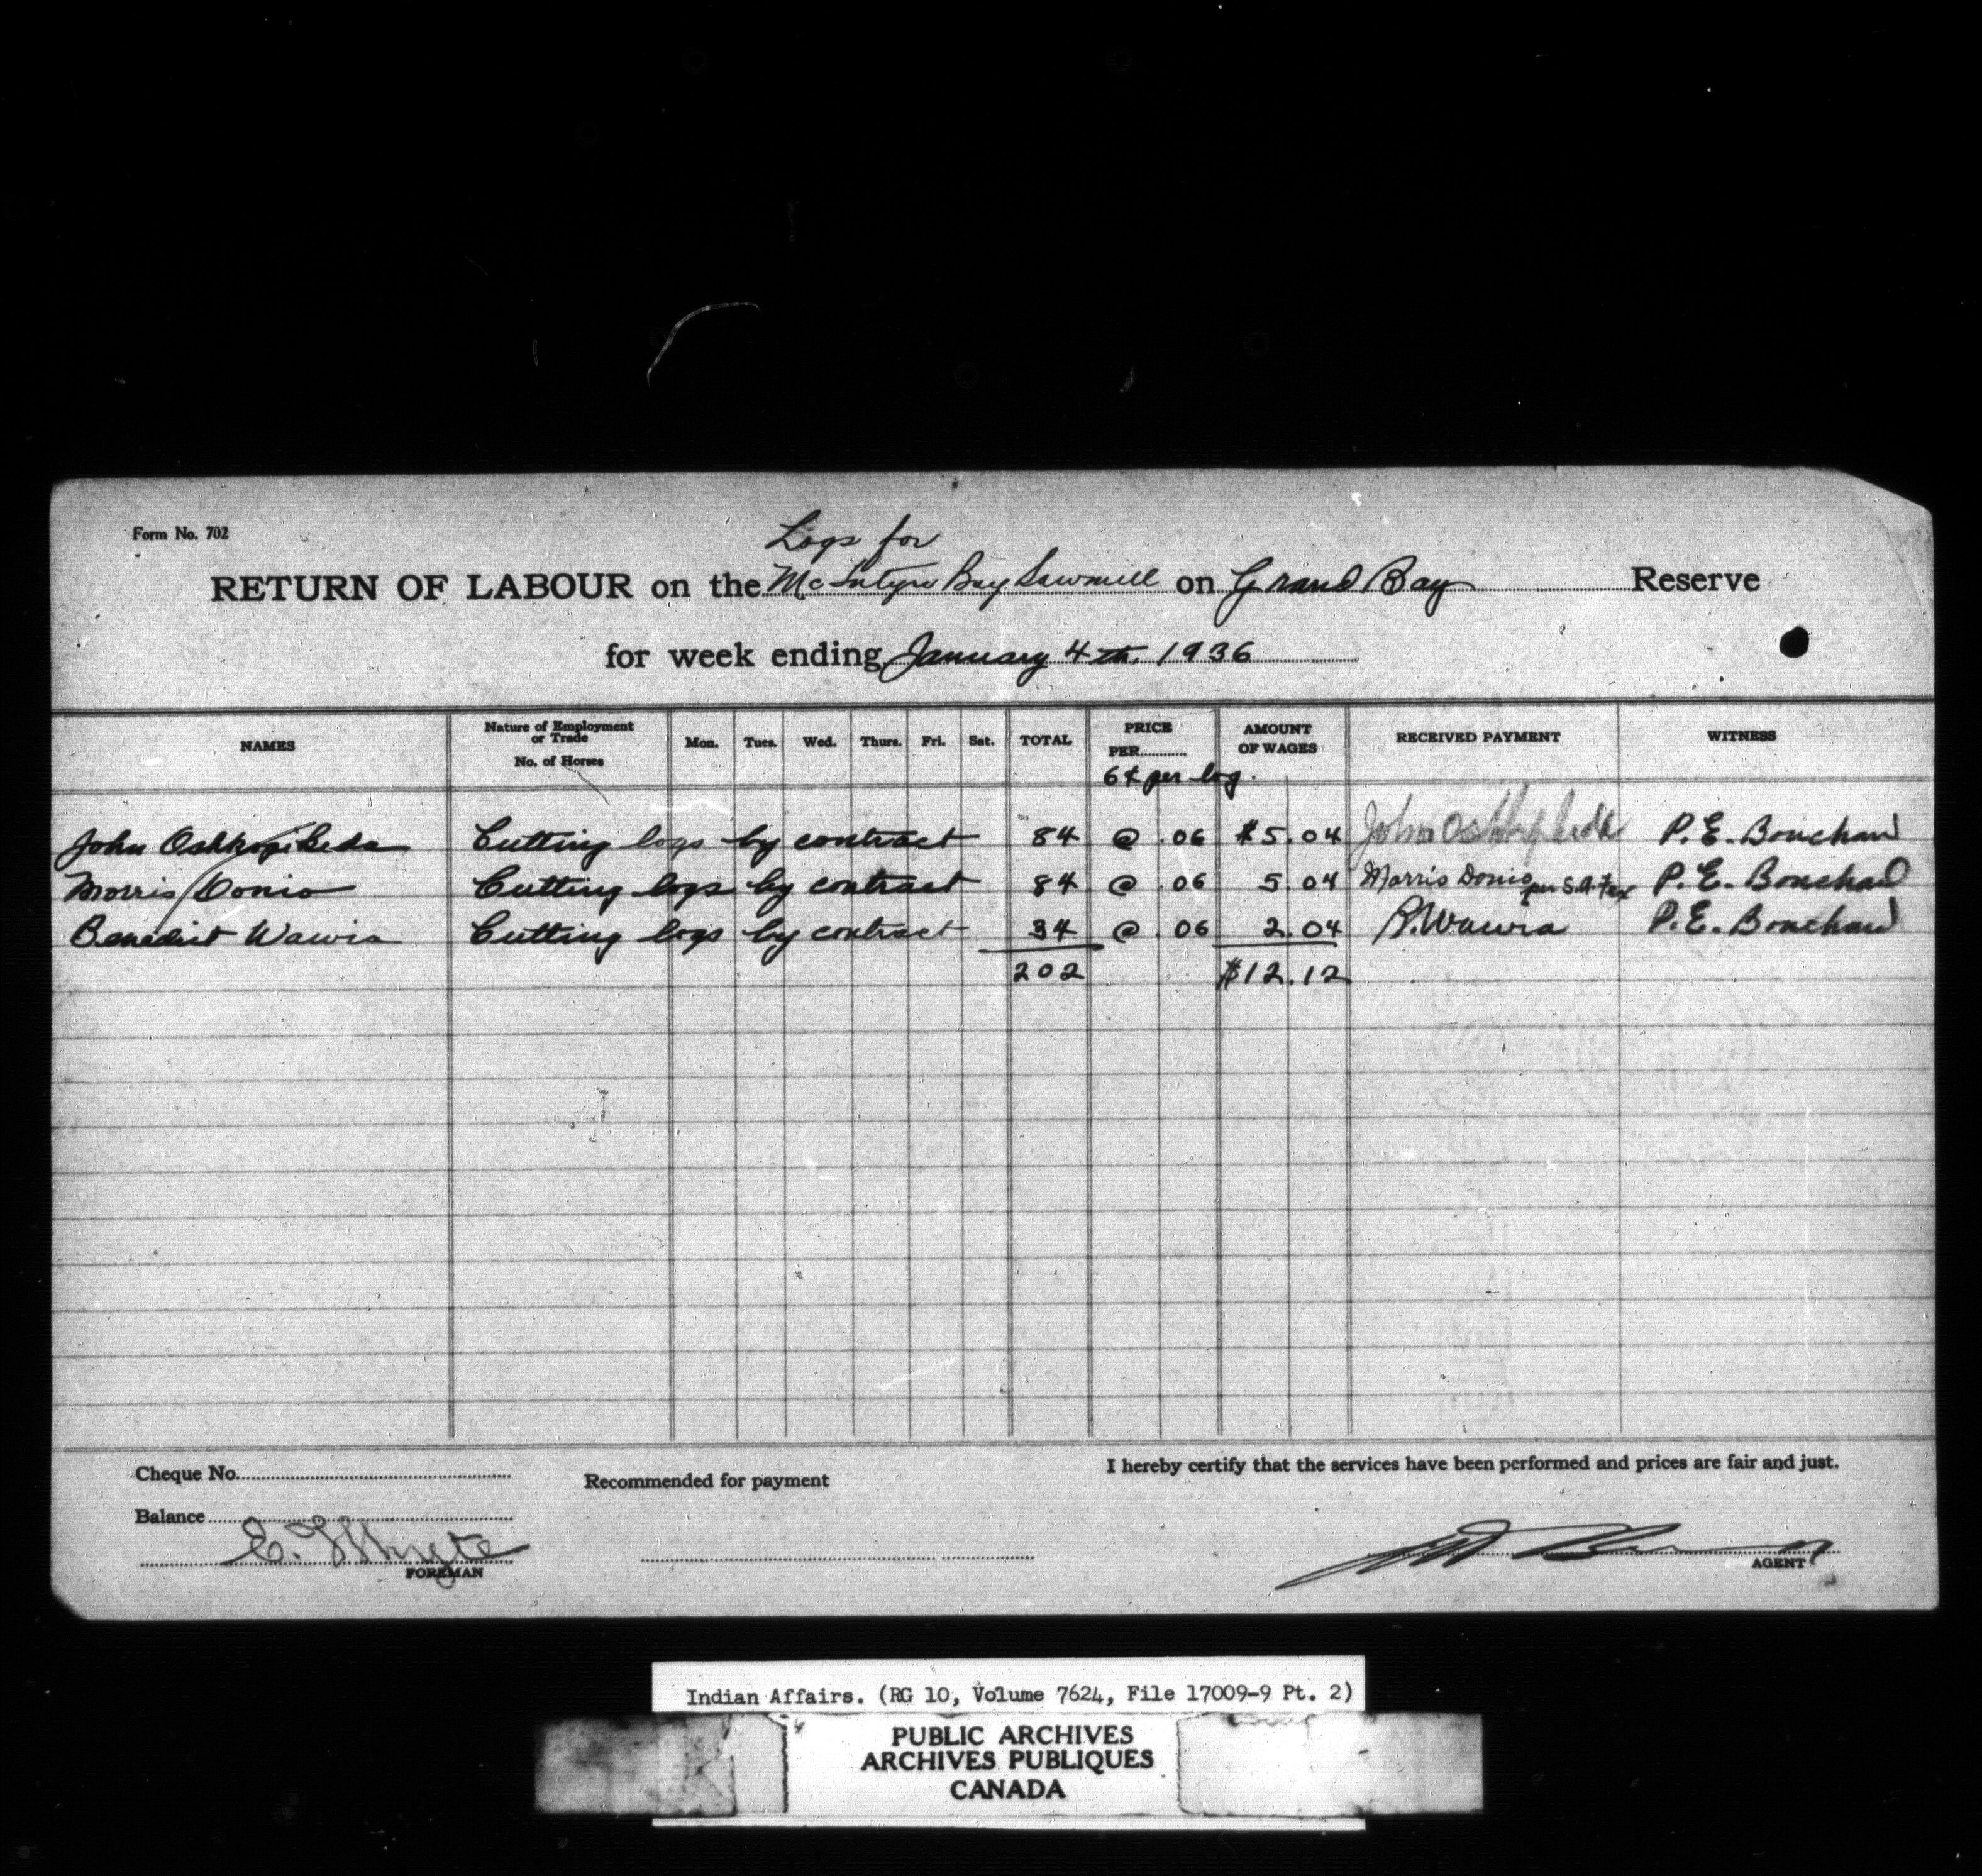 Form No. 702
Logs for
RETURN OF LABOUR on the McIntyre Bay Sawmill on Grand Bay Reserve
for week ending January 4th. 1936
NAMES Nature of Employment or Trade No. of Horses Mon. Tues. Wed. Thurs. Fri. Sat. TOTAL PRICE PER AMOUNT OF WAGES RECEIVED PAYMENT WITNESS
6¢ per log.
John Cutting logs by contract 84 @ .06 $5.04 John P.E. Bouchard
Morris Donio Cutting logs by contract 84 @ .06 5.04 Morris Donio per P.E. Bouchard
Benedict Wawia Cutting logs by contract 34 @ .06 2.04 B. Wawia P.E. Bouchard
202 $12.12
Cheque No. Recommended for payment I hereby certify that the services have been performed and prices are fair and just.
Balance
E. Whyte
FOREMAN AGENT
Indian Affairs. (RG 10, Volume 7624, File 17009-9 Pt. 2)
PUBLIC ARCHIVES
ARCHIVES PUBLIQUES
CANADA